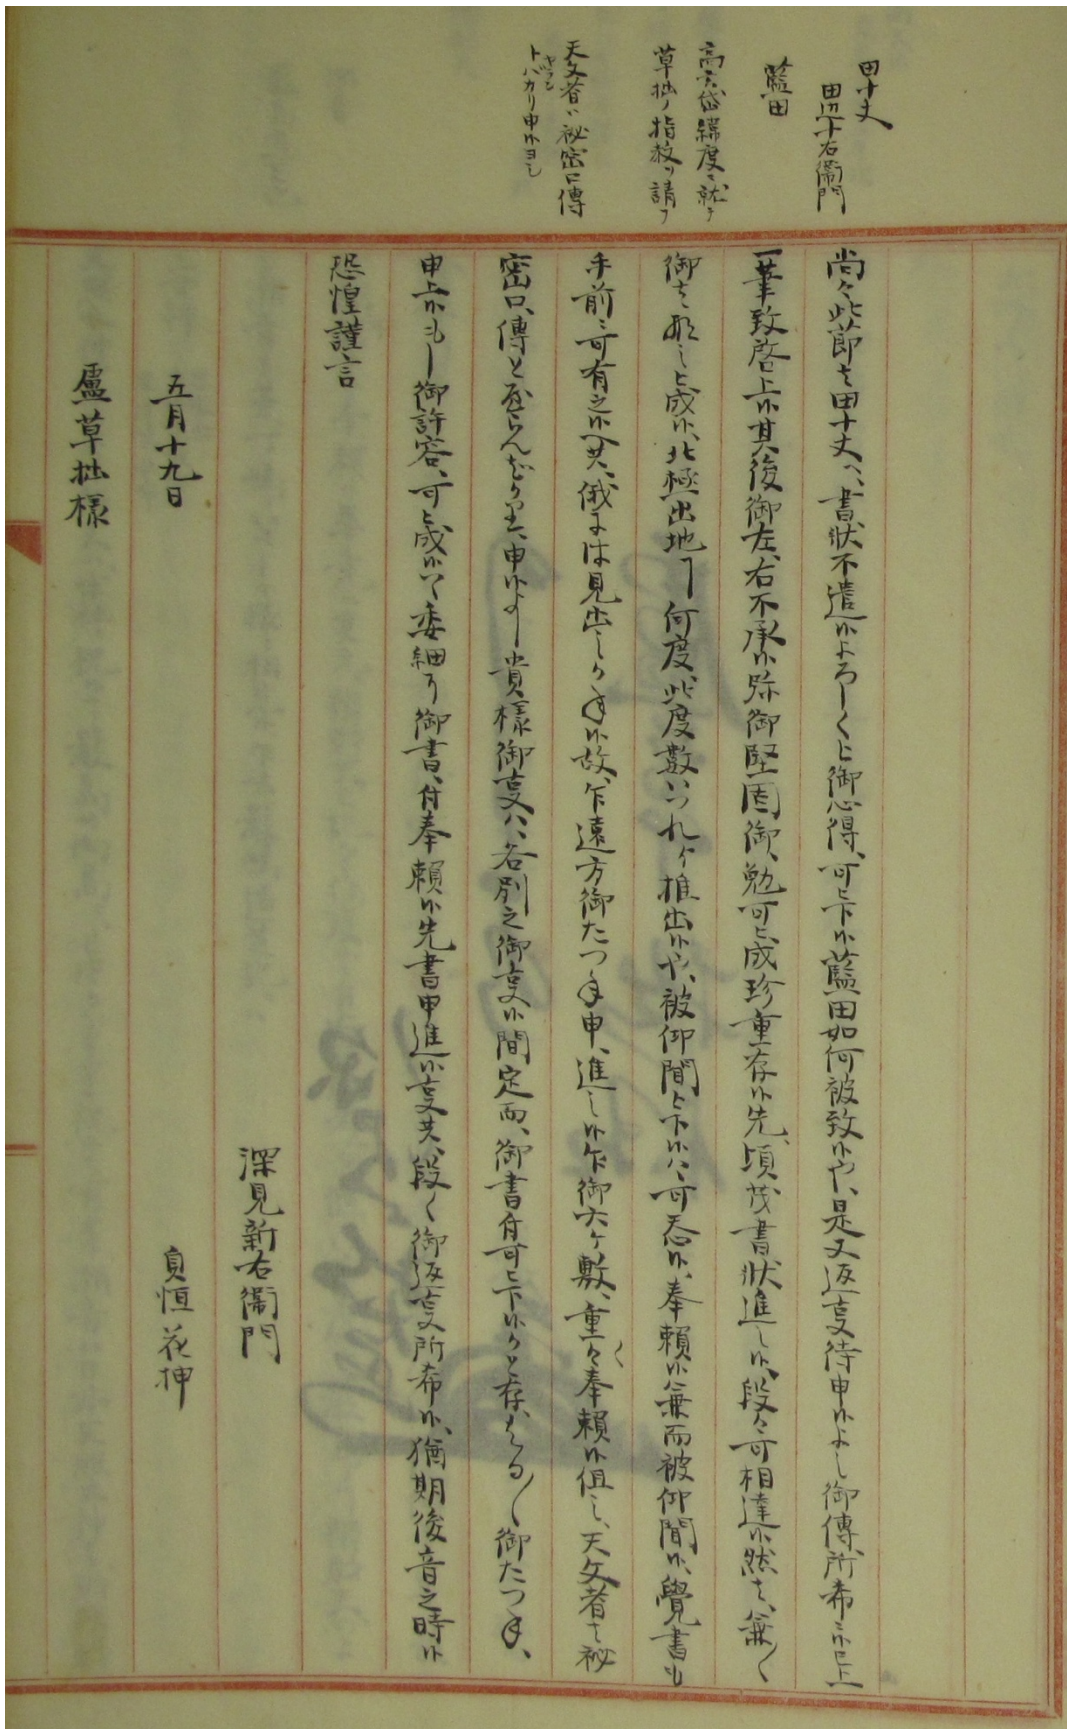 田十丈
田辺十右衞門
藍田
高玄岱緯度ニ就テ
草拙ノ指教ヲ請フ
天文者ハ祕密口傳
ヤラン
トバカリ申候ヨシ
尚々此節者田十丈へ書状不遣候よろしくと御心得可被下候藍田如何被致候や是又返事待申候よし御傳所希ニ候已上
一筆致啓上候其後御左右不承候弥御堅固御勤可被成珍重存候先頃茂書状進之候段々可相達候然者兼々
御さ形被成候北極出地何度此度數いつれヶ推出候や被仰聞被下候ハ可忝候奉頼候兼而被仰聞候覺書も
手前ニ可有之候へ共俄には見出しかね候故乍遠方御たつね申進之候乍御六ヶ敷重々奉頼候但し天文者者祕
密口傳と屋らんばかり申候よし貴様御事ハ各別之御事候間定而御書付可被下候かと存はる〲御たつね
申上候もし御許容可被成候ハヽ委細ニ御書付奉頼候先書申進候事共段々御返事所希候猶期後音之時候
恐惶謹言
深見新右衞門
五月十九日
貞恒花押
盧草拙様